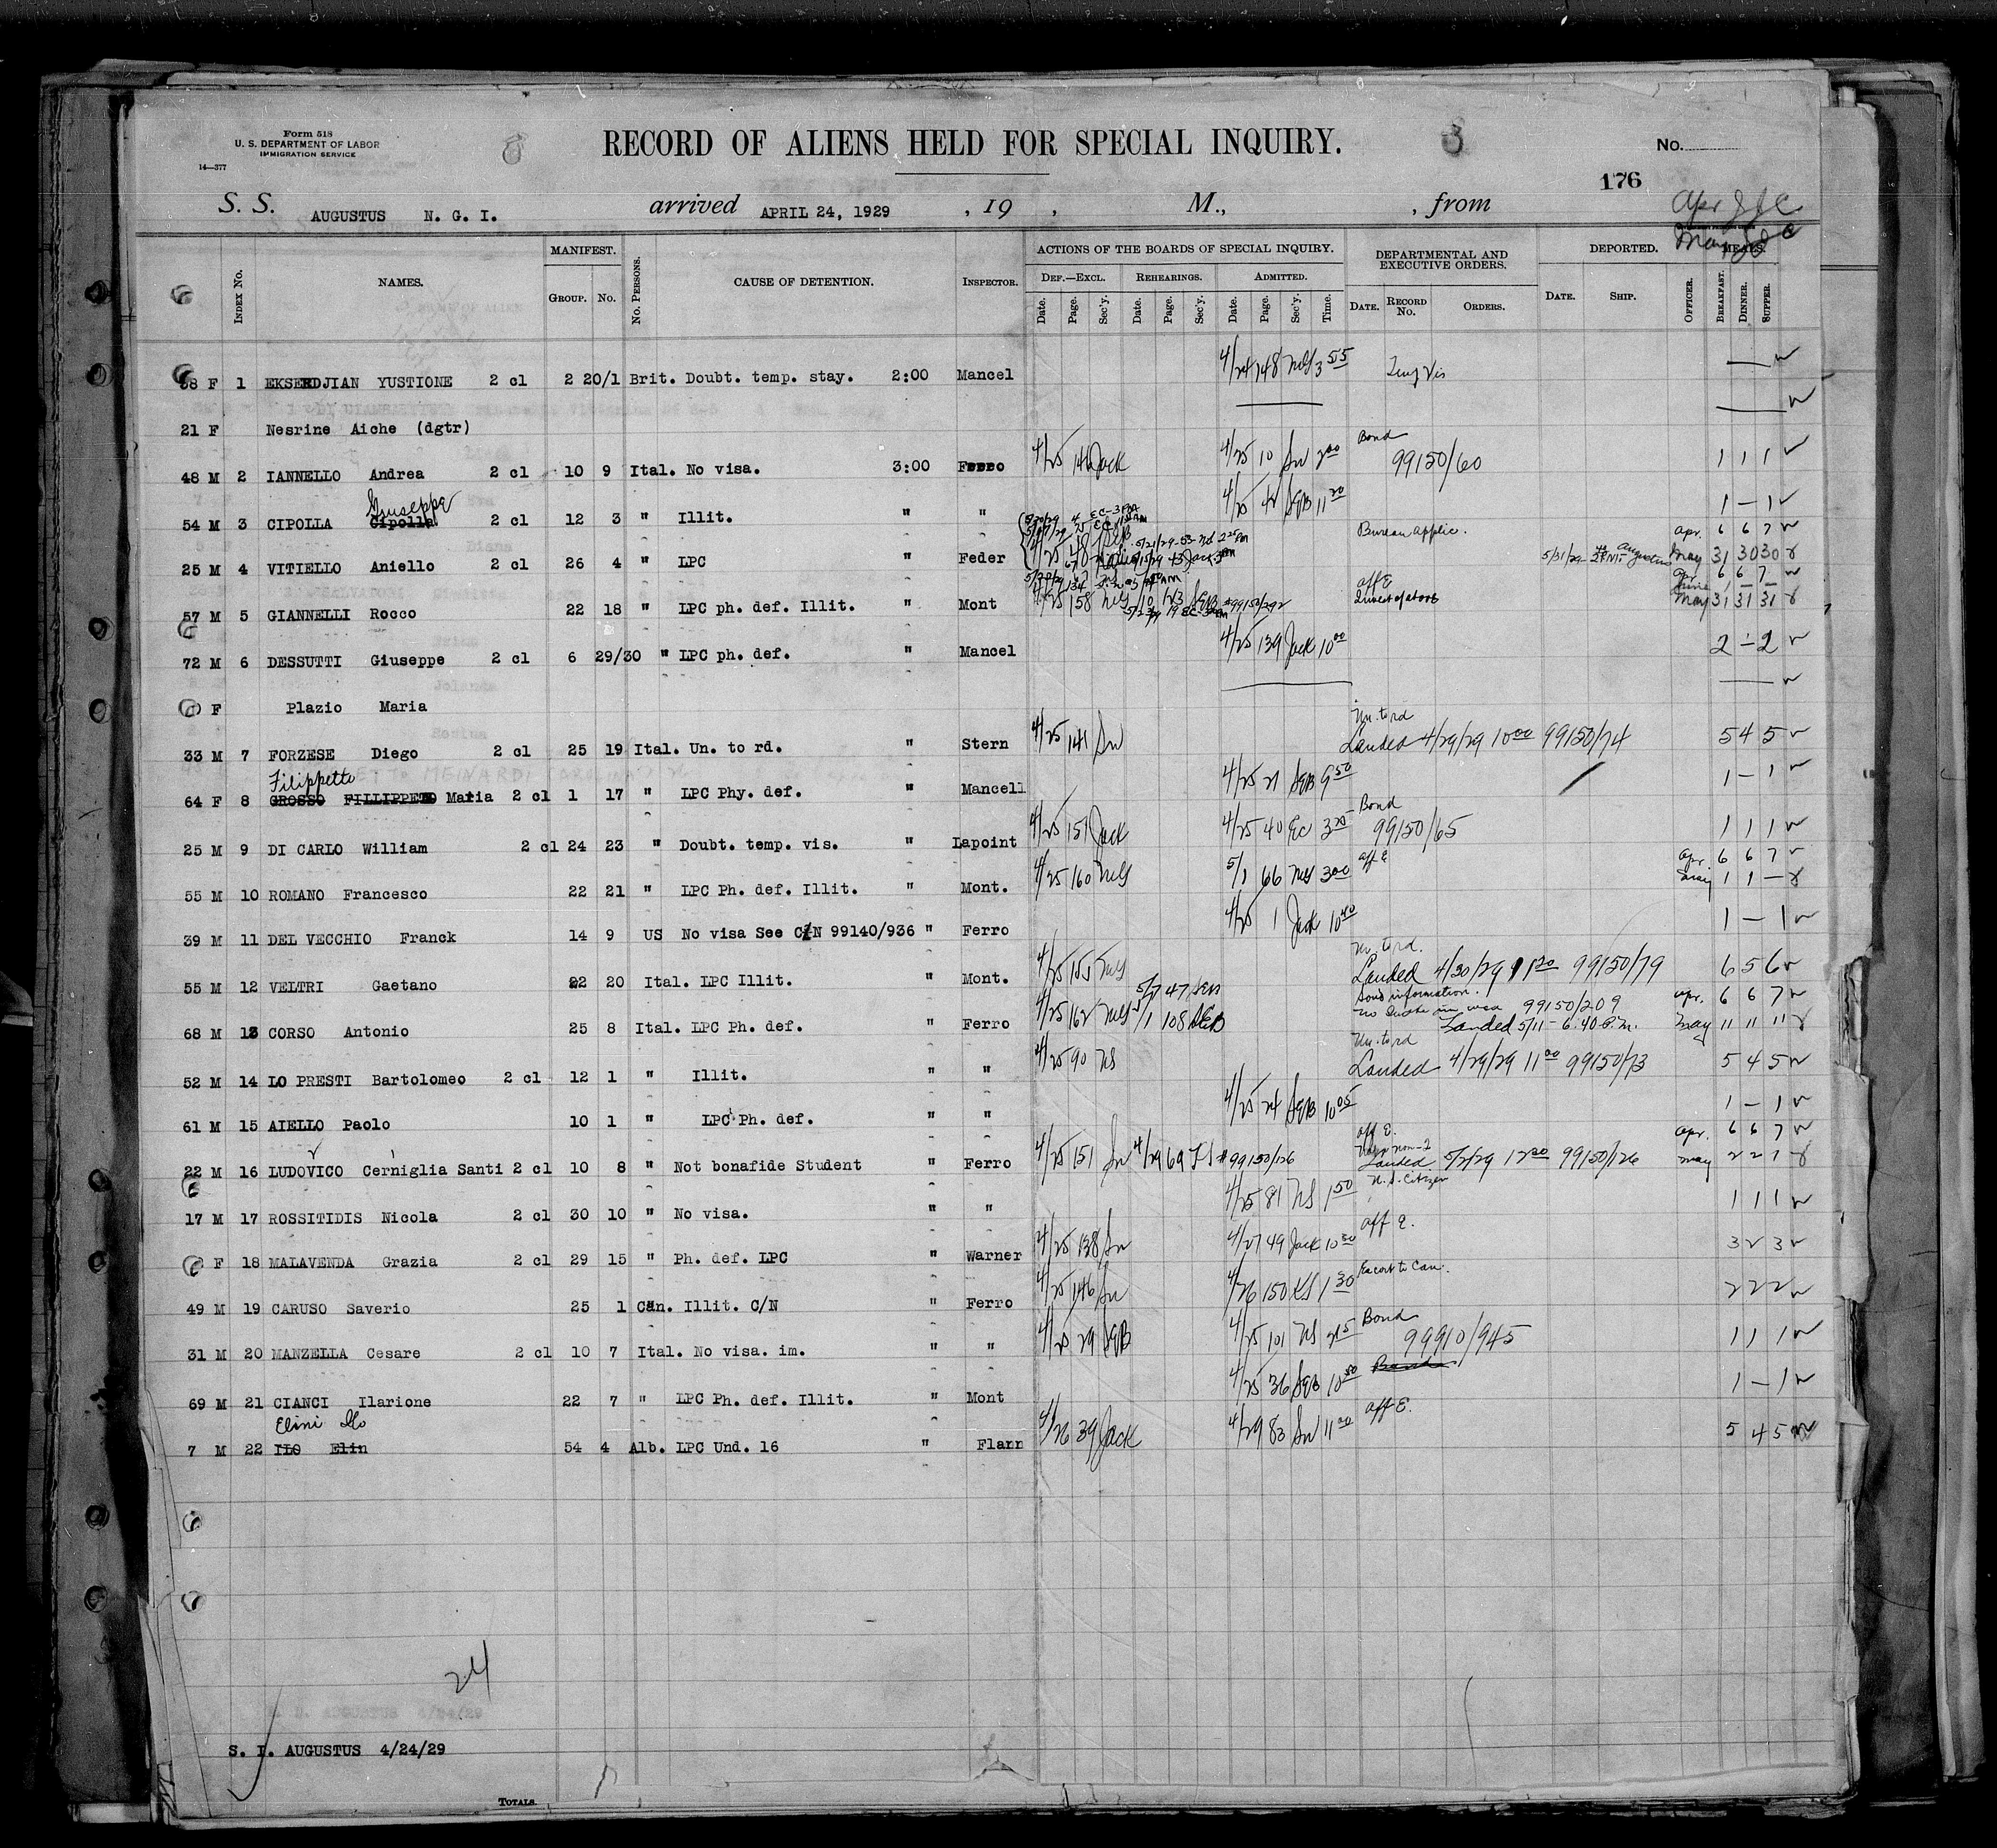 Form 518
U. S. DEPARTMENT OF LABOR
IMMIGRATION SERVICE
14—377
RECORD OF ALIENS HELD FOR SPECIAL INQUIRY.
3
No.
176
S. S. AUGUSTUS N. G. I. arrived APRIL 24, 1929 , 19 , M., , from
INDEX No. NAMES. MANIFEST. GROUP. No. No. PERSONS. CAUSE OF DETENTION. INSPECTOR.
ACTIONS OF THE BOARDS OF SPECIAL INQUIRY. DEF.—EXCL. Date. Page. Sec'y. REHEARINGS. Date. Page. Sec'y. ADMITTED. Date. Page. Sec'y. Time.
DEPARTMENTAL AND EXECUTIVE ORDERS. DATE. RECORD No. ORDERS. DEPORTED. DATE. SHIP. OFFICER. MEALS. BREAKFAST. DINNER. SUPPER.
F 1 EKSERDJIAN YUSTIONE 2 cl 2 20/1 Brit. Doubt. temp. stay. 2:00 Mancel 4/24 148 3 55
21 F Nesrine Aiche (dgtr)
48 M 2 IANNELLO Andrea 2 cl 10 9 Ital. No visa. 3:00 Ferro 4/25 Jack 4/25 10 2 00 Bond 99150/60 1 1 1
54 M 3 CIPOLLA Cipolla Giuseppe 2 cl 12 3 " Illit. " " 4/25 SEB 11 20 1 – 1
25 M 4 VITIELLO Aniello 2 cl 26 4 " LPC " Feder 4/25 48 SEB Bureau Applic. 5/31/29 Augustus Apr. 6 6 7 May 31 30 30
57 M 5 GIANNELLI Rocco 22 18 " LPC ph. def. Illit. " Mont 4/25 158 99150/292 aff E Apr. 6 6 7 June 1 – – May 31 31 31
72 M 6 DESSUTTI Giuseppe 2 cl 6 29/30 " LPC ph. def. " Mancel 4/25 139 Jack 10 00 2 – 2
F Plazio Maria
33 M 7 FORZESE Diego 2 cl 25 19 Ital. Un. to rd. " Stern 4/25 141 Un. to rd Landed 4/29/29 10 00 99150/74 5 4 5
64 F 8 GROSSO FILLIPPETO Filippetto Maria 2 cl 1 17 " LPC Phy. def. " Mancell 4/25 21 SEB 9 50 1 – 1
25 M 9 DI CARLO William 2 cl 24 23 " Doubt. temp. vis. " Lapoint 4/25 151 Jack 4/25 40 EC Bond 99150/65 1 1 1
55 M 10 ROMANO Francesco 22 21 " LPC Ph. def. Illit. " Mont. 4/25 160 5/1 66 3 00 aff E Apr. 6 6 7 May 1 1 –
39 M 11 DEL VECCHIO Franck 14 9 US No visa See C/N 99140/936 " Ferro 4/25 1 Jack 10 40 1 – 1
55 M 12 VELTRI Gaetano 22 20 Ital. LPC Illit. " Mont. 4/25 155 Un. to rd. Landed 4/30/29 99150/79 6 5 6
68 M 13 CORSO Antonio 25 8 Ital. LPC Ph. def. " Ferro 4/25 162 5/1 108 SEB 99150/209 Landed 5/11 – 6:40 P.m. Apr. 6 6 7 May 11 11 11
52 M 14 LO PRESTI Bartolomeo 2 cl 12 1 " Illit. " " 4/25 90 NS Un. to rd Landed 4/29/29 11 00 99150/73 5 4 5
61 M 15 AIELLO Paolo 10 1 " LPC Ph. def. " " 4/25 24 SEB 10 05 1 – 1
22 M 16 LUDOVICO Cerniglia Santi 2 cl 10 8 " Not bonafide Student " Ferro 4/25 151 4/29 69 99150/126 aff E. Landed 5/2/29 99150/126 Apr. 6 6 7 May 2 2 1
17 M 17 ROSSITIDIS Nicola 2 cl 30 10 " No visa. " " 4/25 81 NS 1 50 U. S. Citizen 1 1 1
F 18 MALAVENDA Grazia 2 cl 29 15 " Ph. def. LPC " Warner 4/25 138 4/27 49 Jack 10 30 aff E. 3 2 3
49 M 19 CARUSO Saverio 25 1 Can. Illit. C/N " Ferro 4/25 146 4/26 150 1 30 Escort to Can. 2 2 2
31 M 20 MANZELLA Cesare 2 cl 10 7 Ital. No visa. im. " " 4/25 29 SEB 4/25 101 NS Bond 99910/945 1 1 1
69 M 21 CIANCI Ilarione 22 7 " LPC Ph. def. Illit. " Mont 4/25 36 SEB 10 50 Bond 1 – 1
7 M 22 ILO Elin Elini Ilo 54 4 Alb. LPC Und. 16 " Flann 4/26 39 Jack 4/29 83 11 00 aff E. 5 4 5
24
S. I. AUGUSTUS 4/24/29
TOTALS.